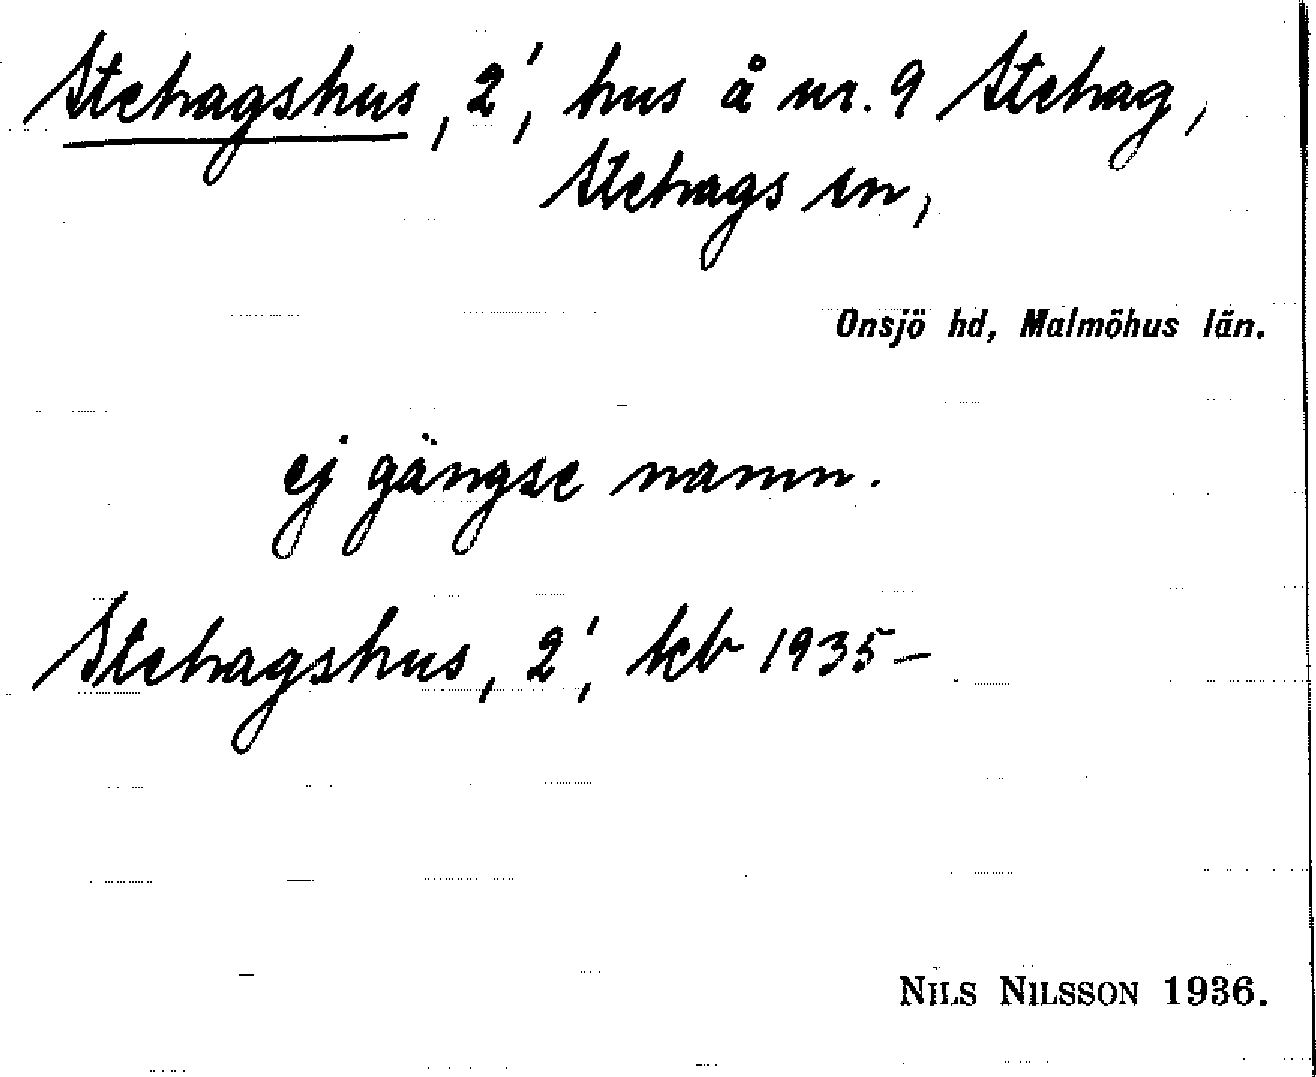 Stehagshus, 2', hus å nr. 9 Stehag,
Stehags sn,
Onsjö hd, Malmöhus län.
ej gängse namn.
Stehagshus, 2', kb 1935–
NILS NILSSON 1936.